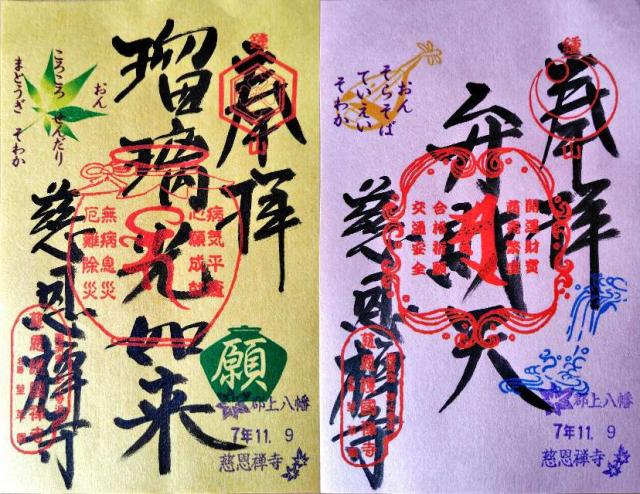 奉拝
瑠璃光如来
慈恩禅寺
おん
ころころ せんだり
まとうぎ そわか
鍾
山
病気平癒
心願成就
無病息災
厄難除災
願
郡上八幡
7年11.9
慈恩禅寺
奉拝
弁財天
慈恩禅寺
おん
そらそば
ていえい
そわか
鍾
山
開運財宝
合格祈願
交通安全
郡上八幡
7年11.9
慈恩禅寺